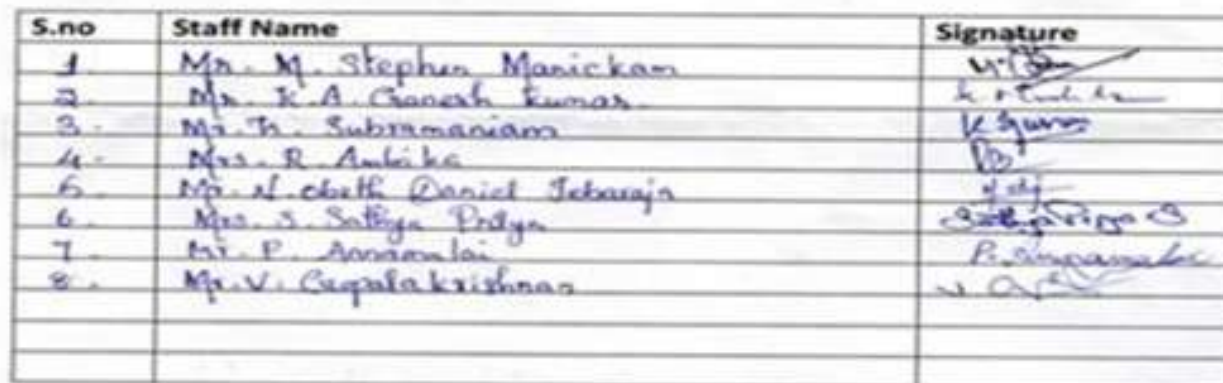 S.no Staff Name Signature
1. Mr. M. Stephen Manickam
2. Mr. K.A. Ganesh Kumar.
3. Mr. K. Subramaniam
4. Mrs. R. Ambika
5. Mr. N. obeth Daniel Jebaraja
6. Mrs. S. Sathya Priya Sathya Priya S
7. Mr. P. Annamalai
8. Mr. V. Gopalakrishnan